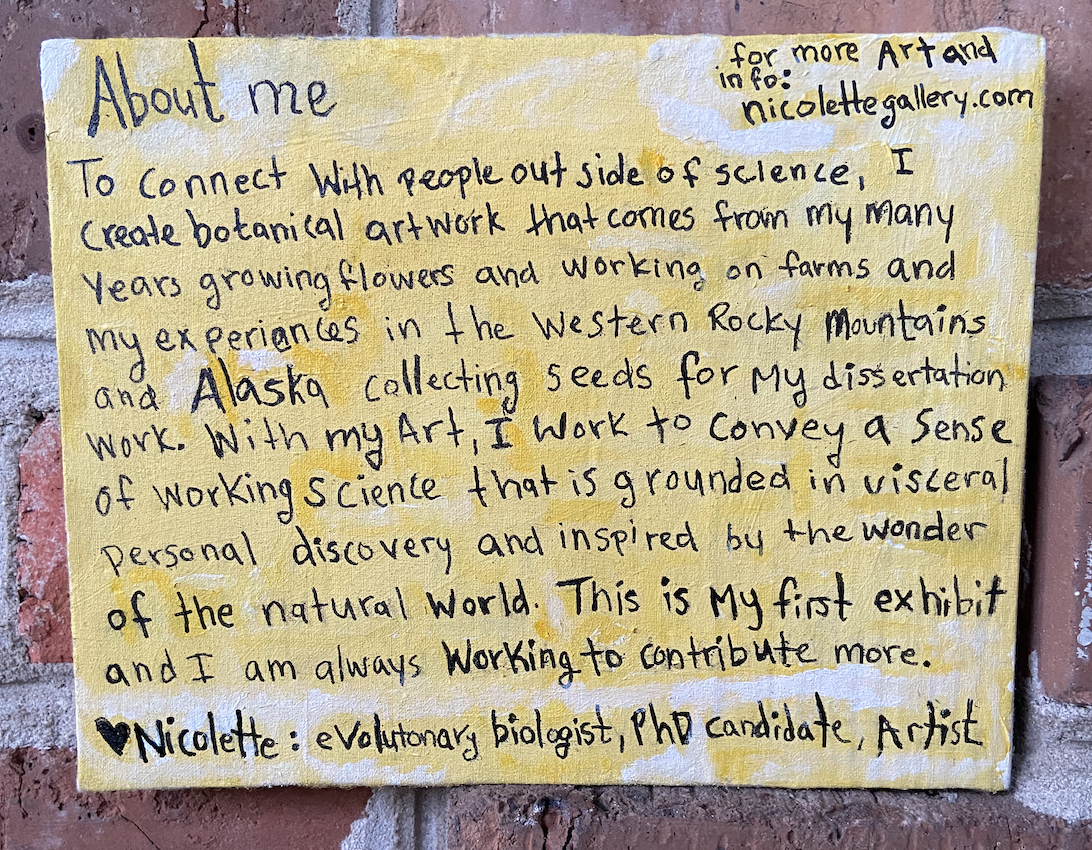 About me
for more Art and
info:
nicolettegallery.com
To connect with people out side of science, I
create botanical artwork that comes from my many
years growing flowers and working on farms and
my experiances in the western Rocky Mountains
and Alaska collecting seeds for my dissertation
work. With my Art, I work to convey a sense
of working science that is grounded in visceral
personal discovery and inspired by the wonder
of the natural world. This is my first exhibit
and I am always working to contribute more.
♥Nicolette: evolutonary biologist, PhD candidate, Artist